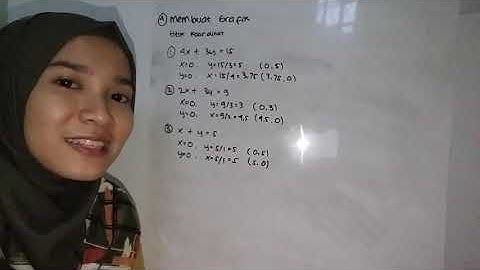 ④ Membuat Grafik
titik koordinat
① 4x + 3y = 15
x=0. y=15/3=5 (0,5)
y=0. x=15/4=3.75 (3.75,0)
② 2x + 3y = 9
x=0. y=9/3=3 (0,3)
y=0. x=9/2=4,5 (4.5,0)
③ x + y = 5
x=0. y=5/1=5 (0,5)
y=0. x=5/1=5 (5,0)